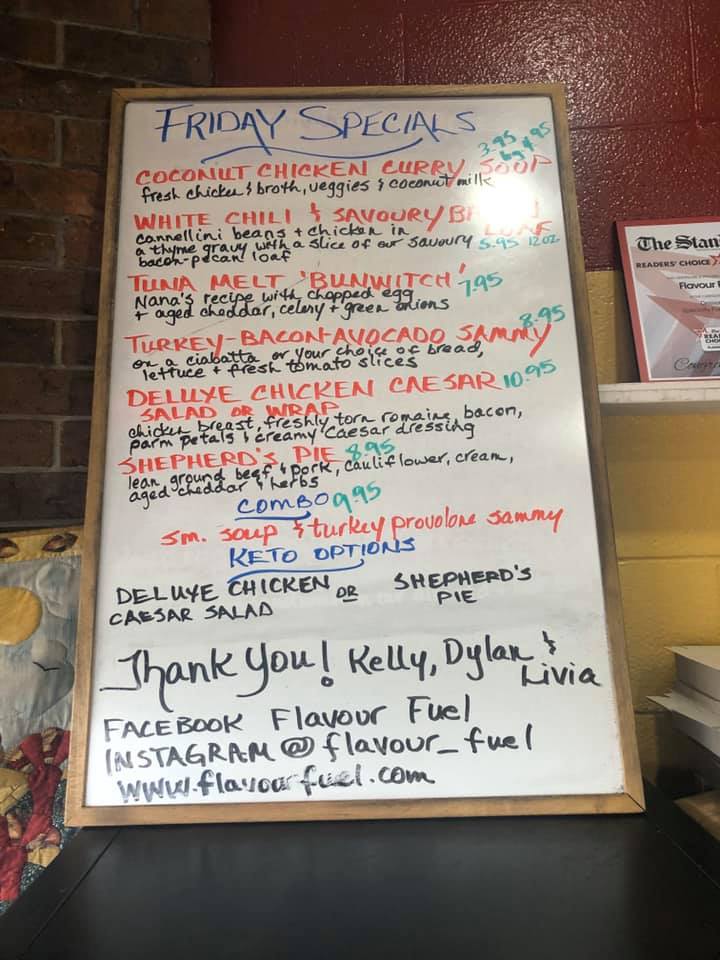 FRIDAY SPECIALS
3.95
COCONUT CHICKEN CURRY SOUP
lg 4.95
fresh chicken & broth, veggies & coconut milk
WHITE CHILI & SAVOURY
LOAF
cannellini beans + chicken in
a thyme gravy with a slice of our savoury 5.95 12oz
bacon-pecan loaf
TUNA MELT 'BUNWITCH' 7.95
Nana's recipe with chopped egg
+ aged cheddar, celery + green onions
8.95
TURKEY-BACON-AVOCADO SAMMY
on a ciabatta or your choice of bread,
lettuce + fresh tomato slices
DELUXE CHICKEN CAESAR 10.95
SALAD OR WRAP
chicken breast, freshly torn romaine, bacon,
parm petals & creamy Caesar dressing
SHEPHERD'S PIE 8.95
lean ground beef & pork, cauliflower, cream,
aged cheddar & herbs
COMBO 9.95
sm. soup & turkey provolone sammy
KETO OPTIONS
DELUXE CHICKEN OR SHEPHERD'S
CAESAR SALAD PIE
Thank You! Kelly, Dylan &
Livia
FACEBOOK Flavour Fuel
INSTAGRAM @flavour_fuel
www.flavourfuel.com
The Stan
READERS' CHOICE
Flavour F